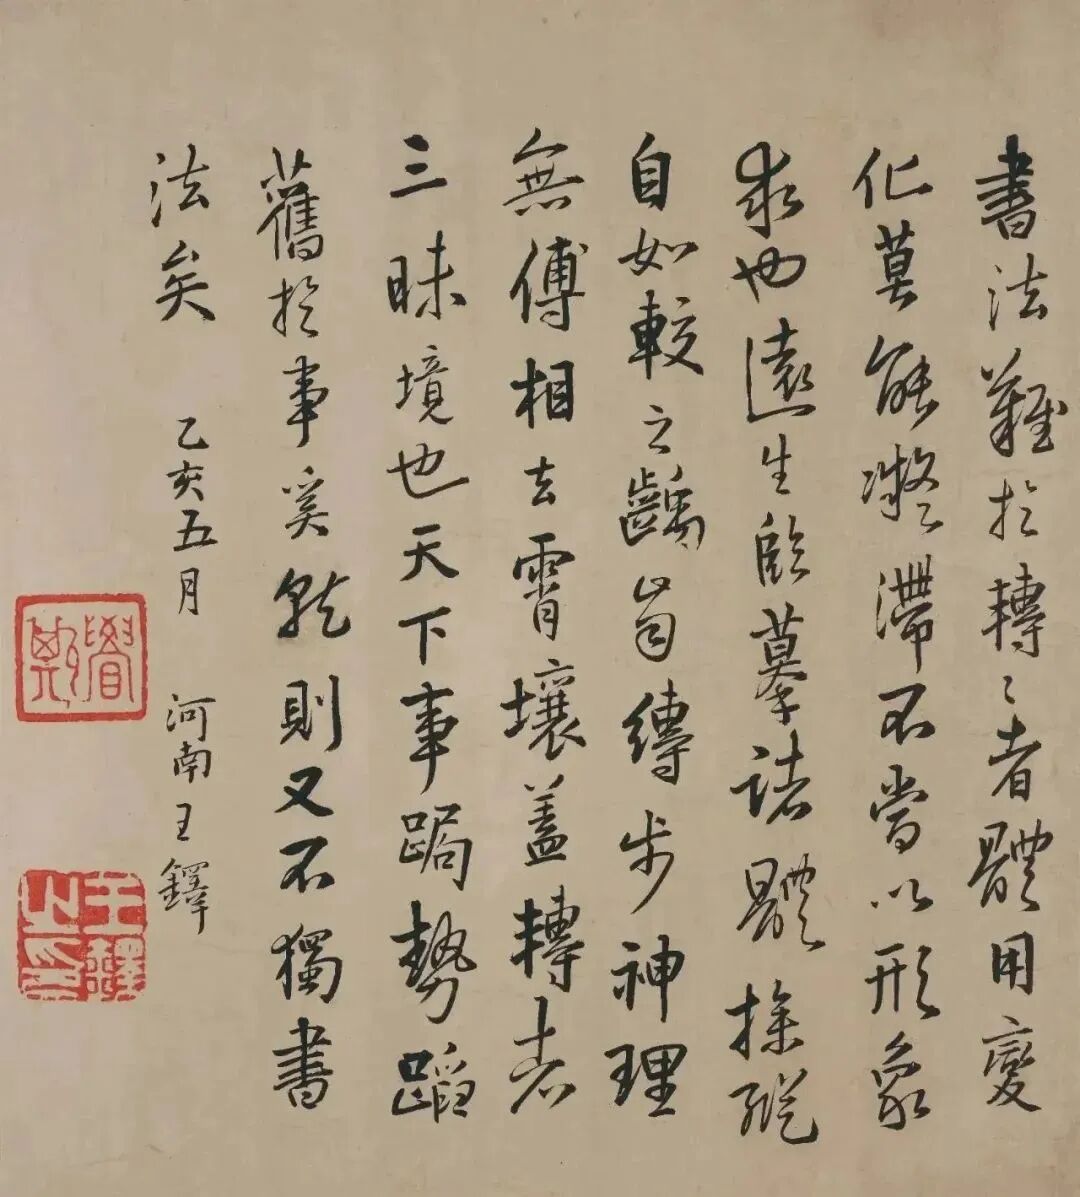 書法難於轉〻者體用變
化莫能凝滯不當以形象
求也遠生臨摹諸體操縱
自如較之縛步神理
無傅相去霄壤蓋轉者
三昧境也天下事跼勢蹈
舊於事奚就則又不獨書
法矣 乙亥五月 河南王鐸
覺斯
王鐸之印